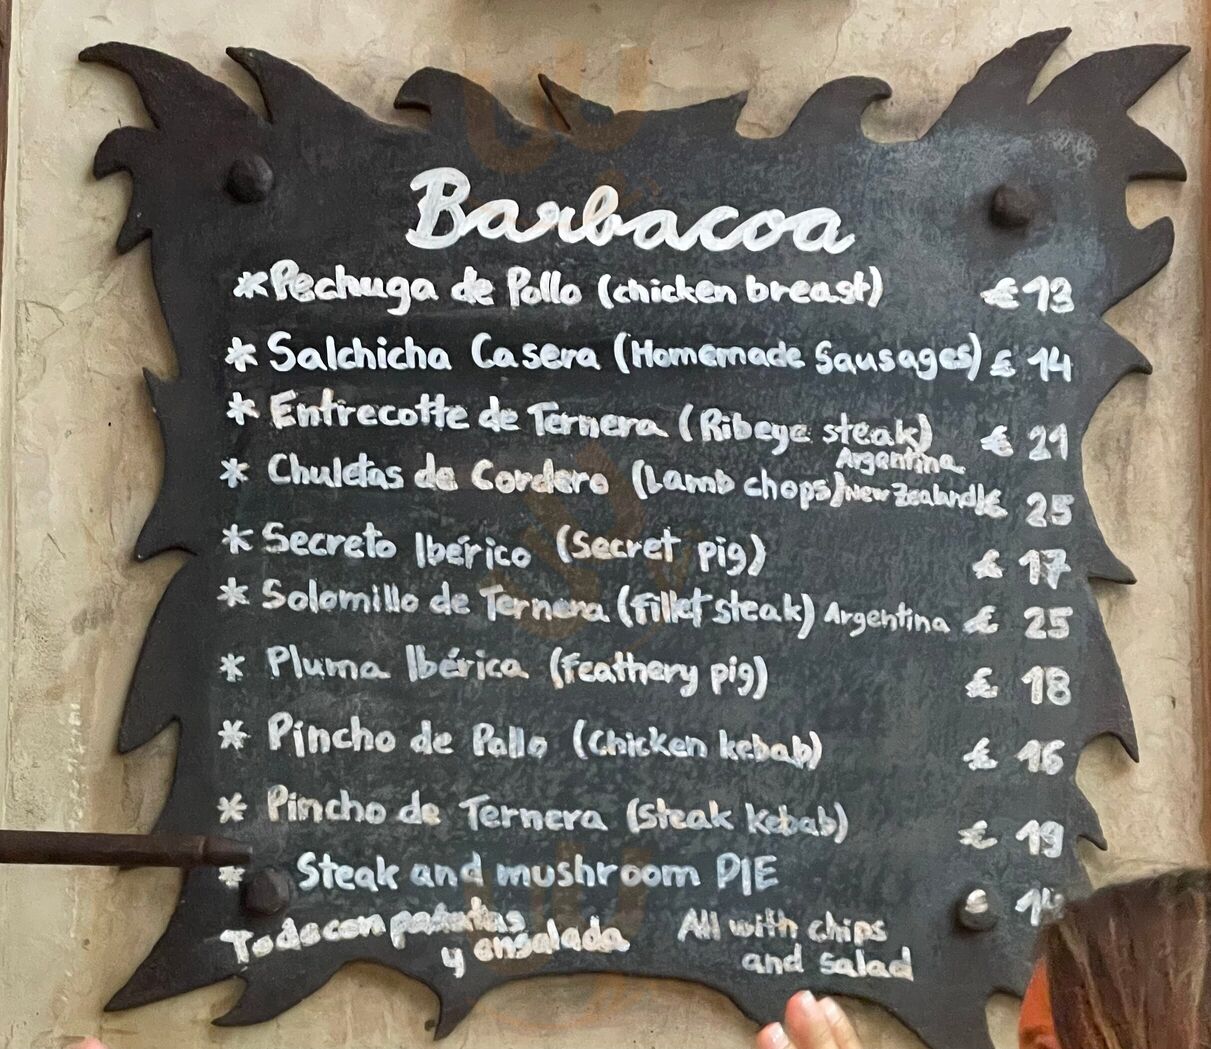 Barbacoa
* Pechuga de Pollo (chicken breast) € 13
* Salchicha Casera (Homemade Sausages) € 14
* Entrecotte de Ternera (Ribeye steak) € 21
Argentina
* Chuletas de Cordero (Lamb chops) New Zealand € 25
* Secreto Ibérico (secret pig) € 17
* Solomillo de Ternera (fillet steak) Argentina € 25
* Pluma Ibérica (feathery pig) € 18
* Pincho de Pollo (chicken kebab) € 16
* Pincho de Ternera (steak kebab) € 19
* Steak and mushroom PIE €
Todo con patatas
y ensalada
All with chips
and salad